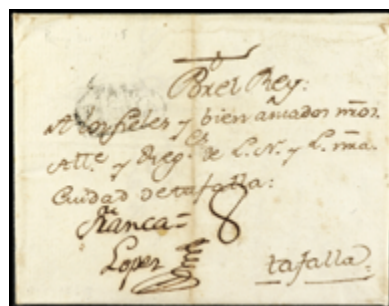 Por el Rey:
A los fieles y bien amados nr̃os.
Allᵉ. y Regᵉˢ. de L. N. y L. nr̃a.
Ciudad de tafalla:
franca = 8
Lopez
tafalla: